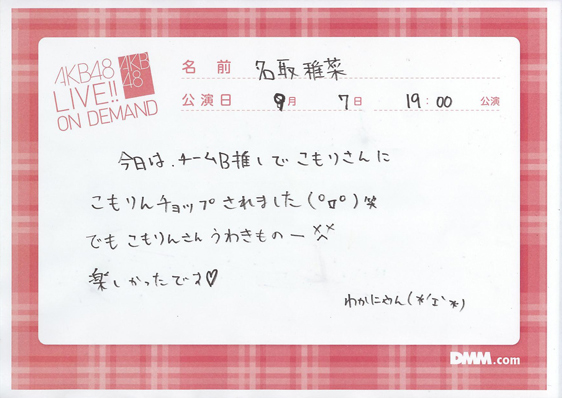 AKB48
LIVE!!
ON DEMAND
AKB
48
名前 名取稚菜
公演日 9月 7日 19:00 公演
今日は、チームB推しで こもりさんに
こもりんチョップされました(°▽°)笑
でも こもりんさん うわきものー ××
楽しかったです♡
わかにゃん(*'ェ'*)
DMM.com